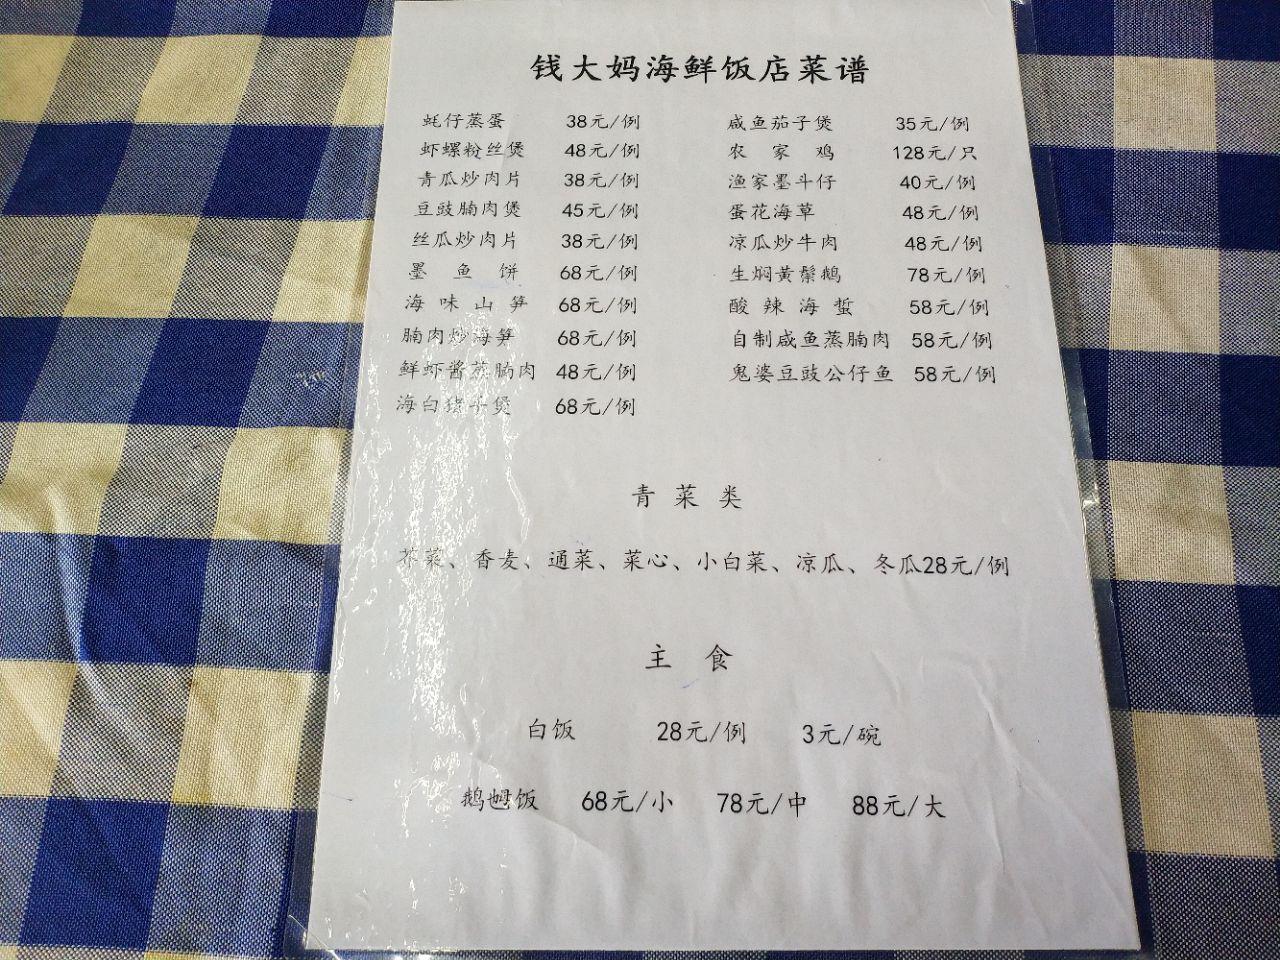 钱大妈海鲜饭店菜谱
蚝仔蒸蛋 38元/例
虾螺粉丝煲 48元/例
青瓜炒肉片 38元/例
豆豉腩肉煲 45元/例
丝瓜炒肉片 38元/例
墨鱼饼 68元/例
海味山笋 68元/例
腩肉炒海笋 68元/例
鲜虾酱蒸腩肉 48元/例
海白猪手煲 68元/例
咸鱼茄子煲 35元/例
农家鸡 128元/只
渔家墨斗仔 40元/例
蛋花海草 48元/例
凉瓜炒牛肉 48元/例
生焖黄鬃鹅 78元/例
酸辣海蜇 58元/例
自制咸鱼蒸腩肉 58元/例
鬼婆豆豉公仔鱼 58元/例
青菜类
芥菜、香麦、通菜、菜心、小白菜、凉瓜、冬瓜28元/例
主食
白饭 28元/例 3元/碗
鹅乸饭 68元/小 78元/中 88元/大